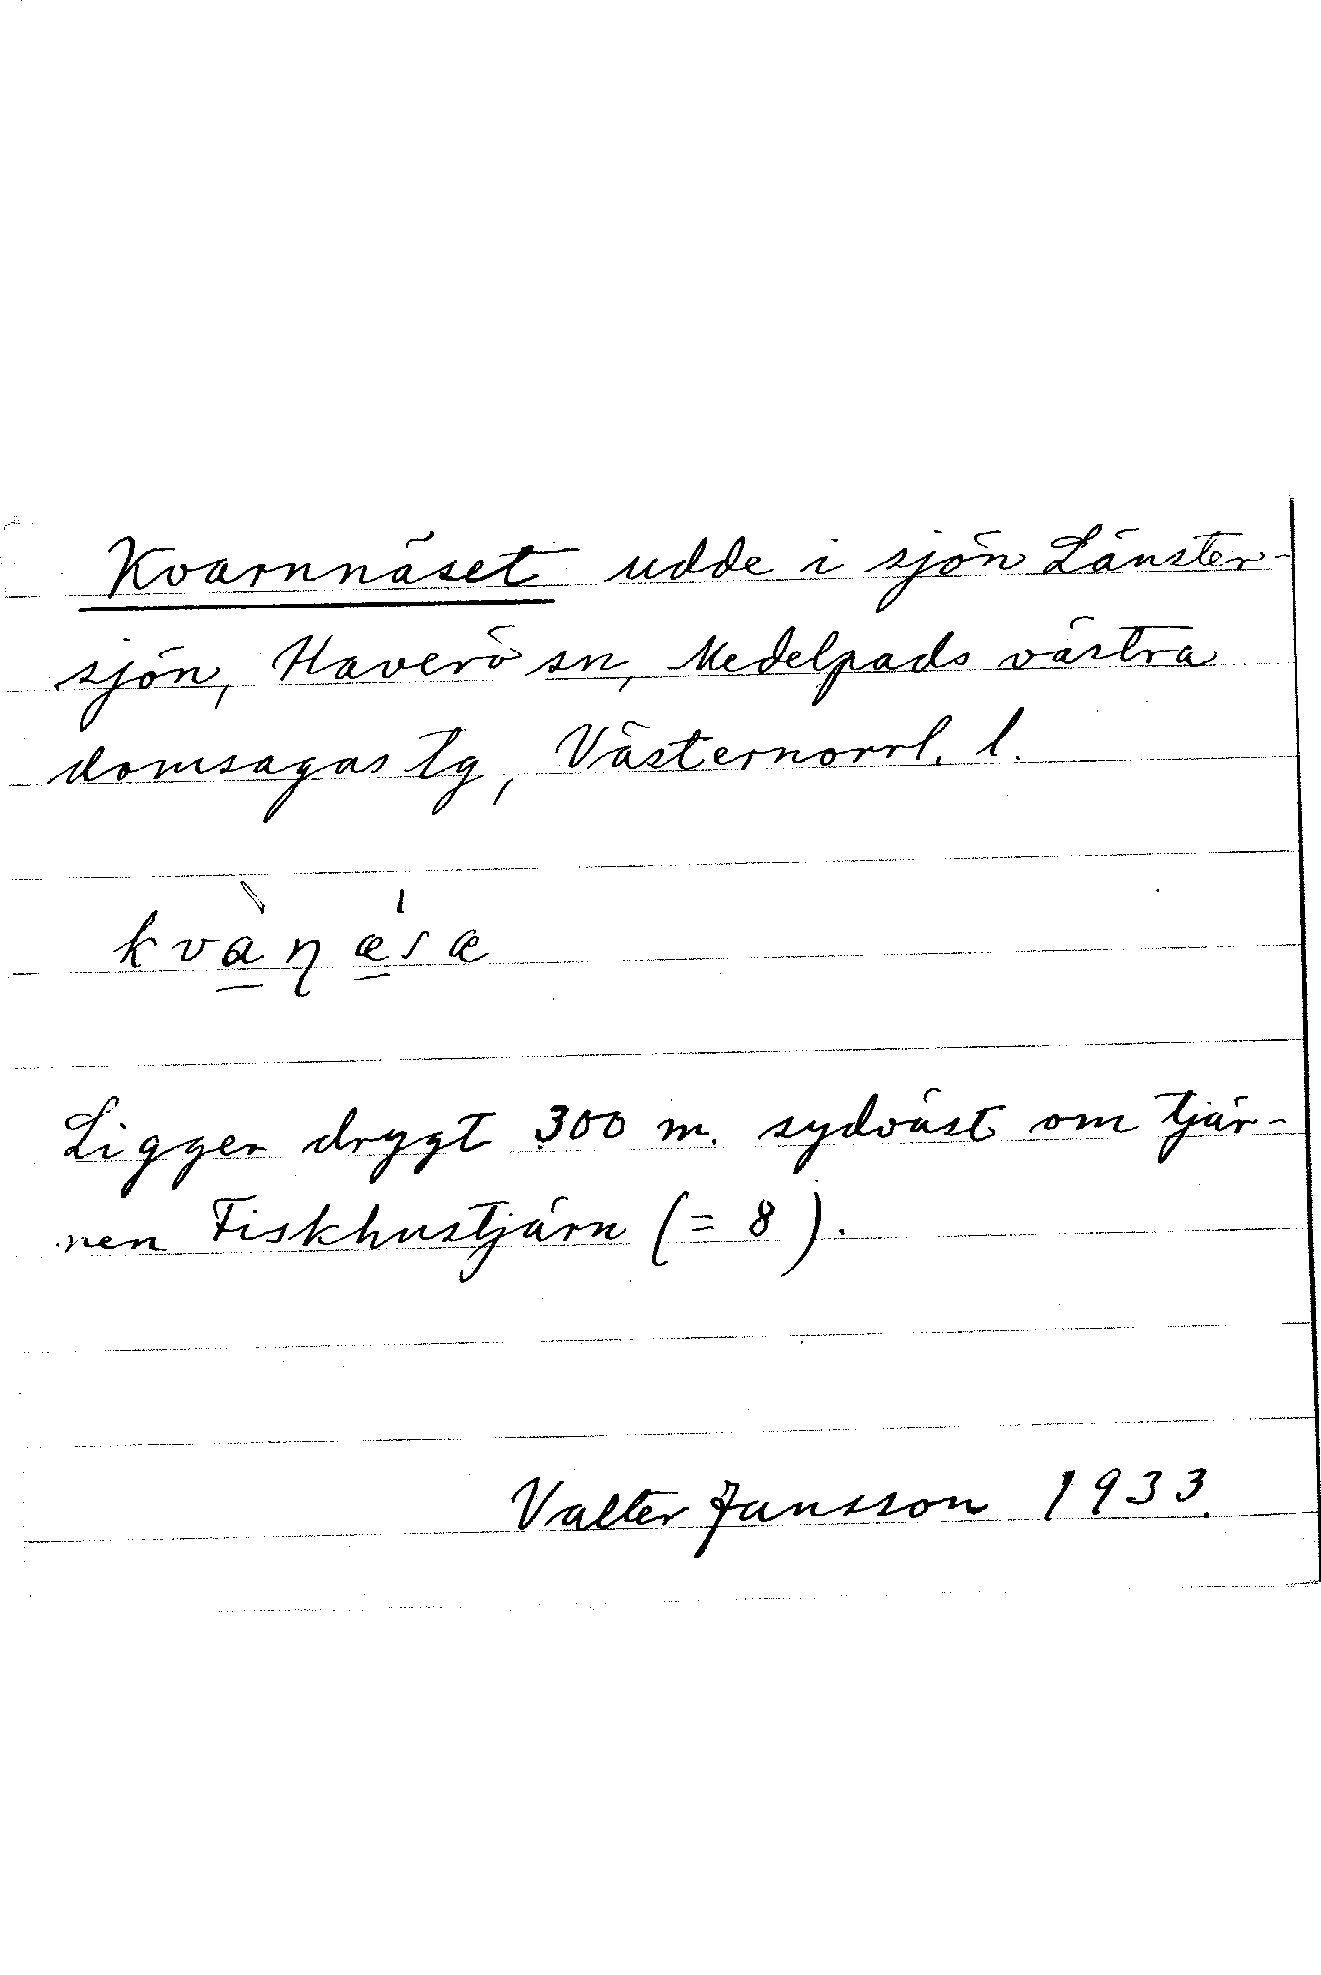 Kvarnnäset udde i sjön Länster-
sjön, Haverö sn, Medelpads västra
domsagas tg, Västernorrl. l.
kvàṇæ̍sæ
Ligger drygt 300 m. sydväst om tjär-
nen Fiskhustjärn (= 8).
Valter Jansson 1933.